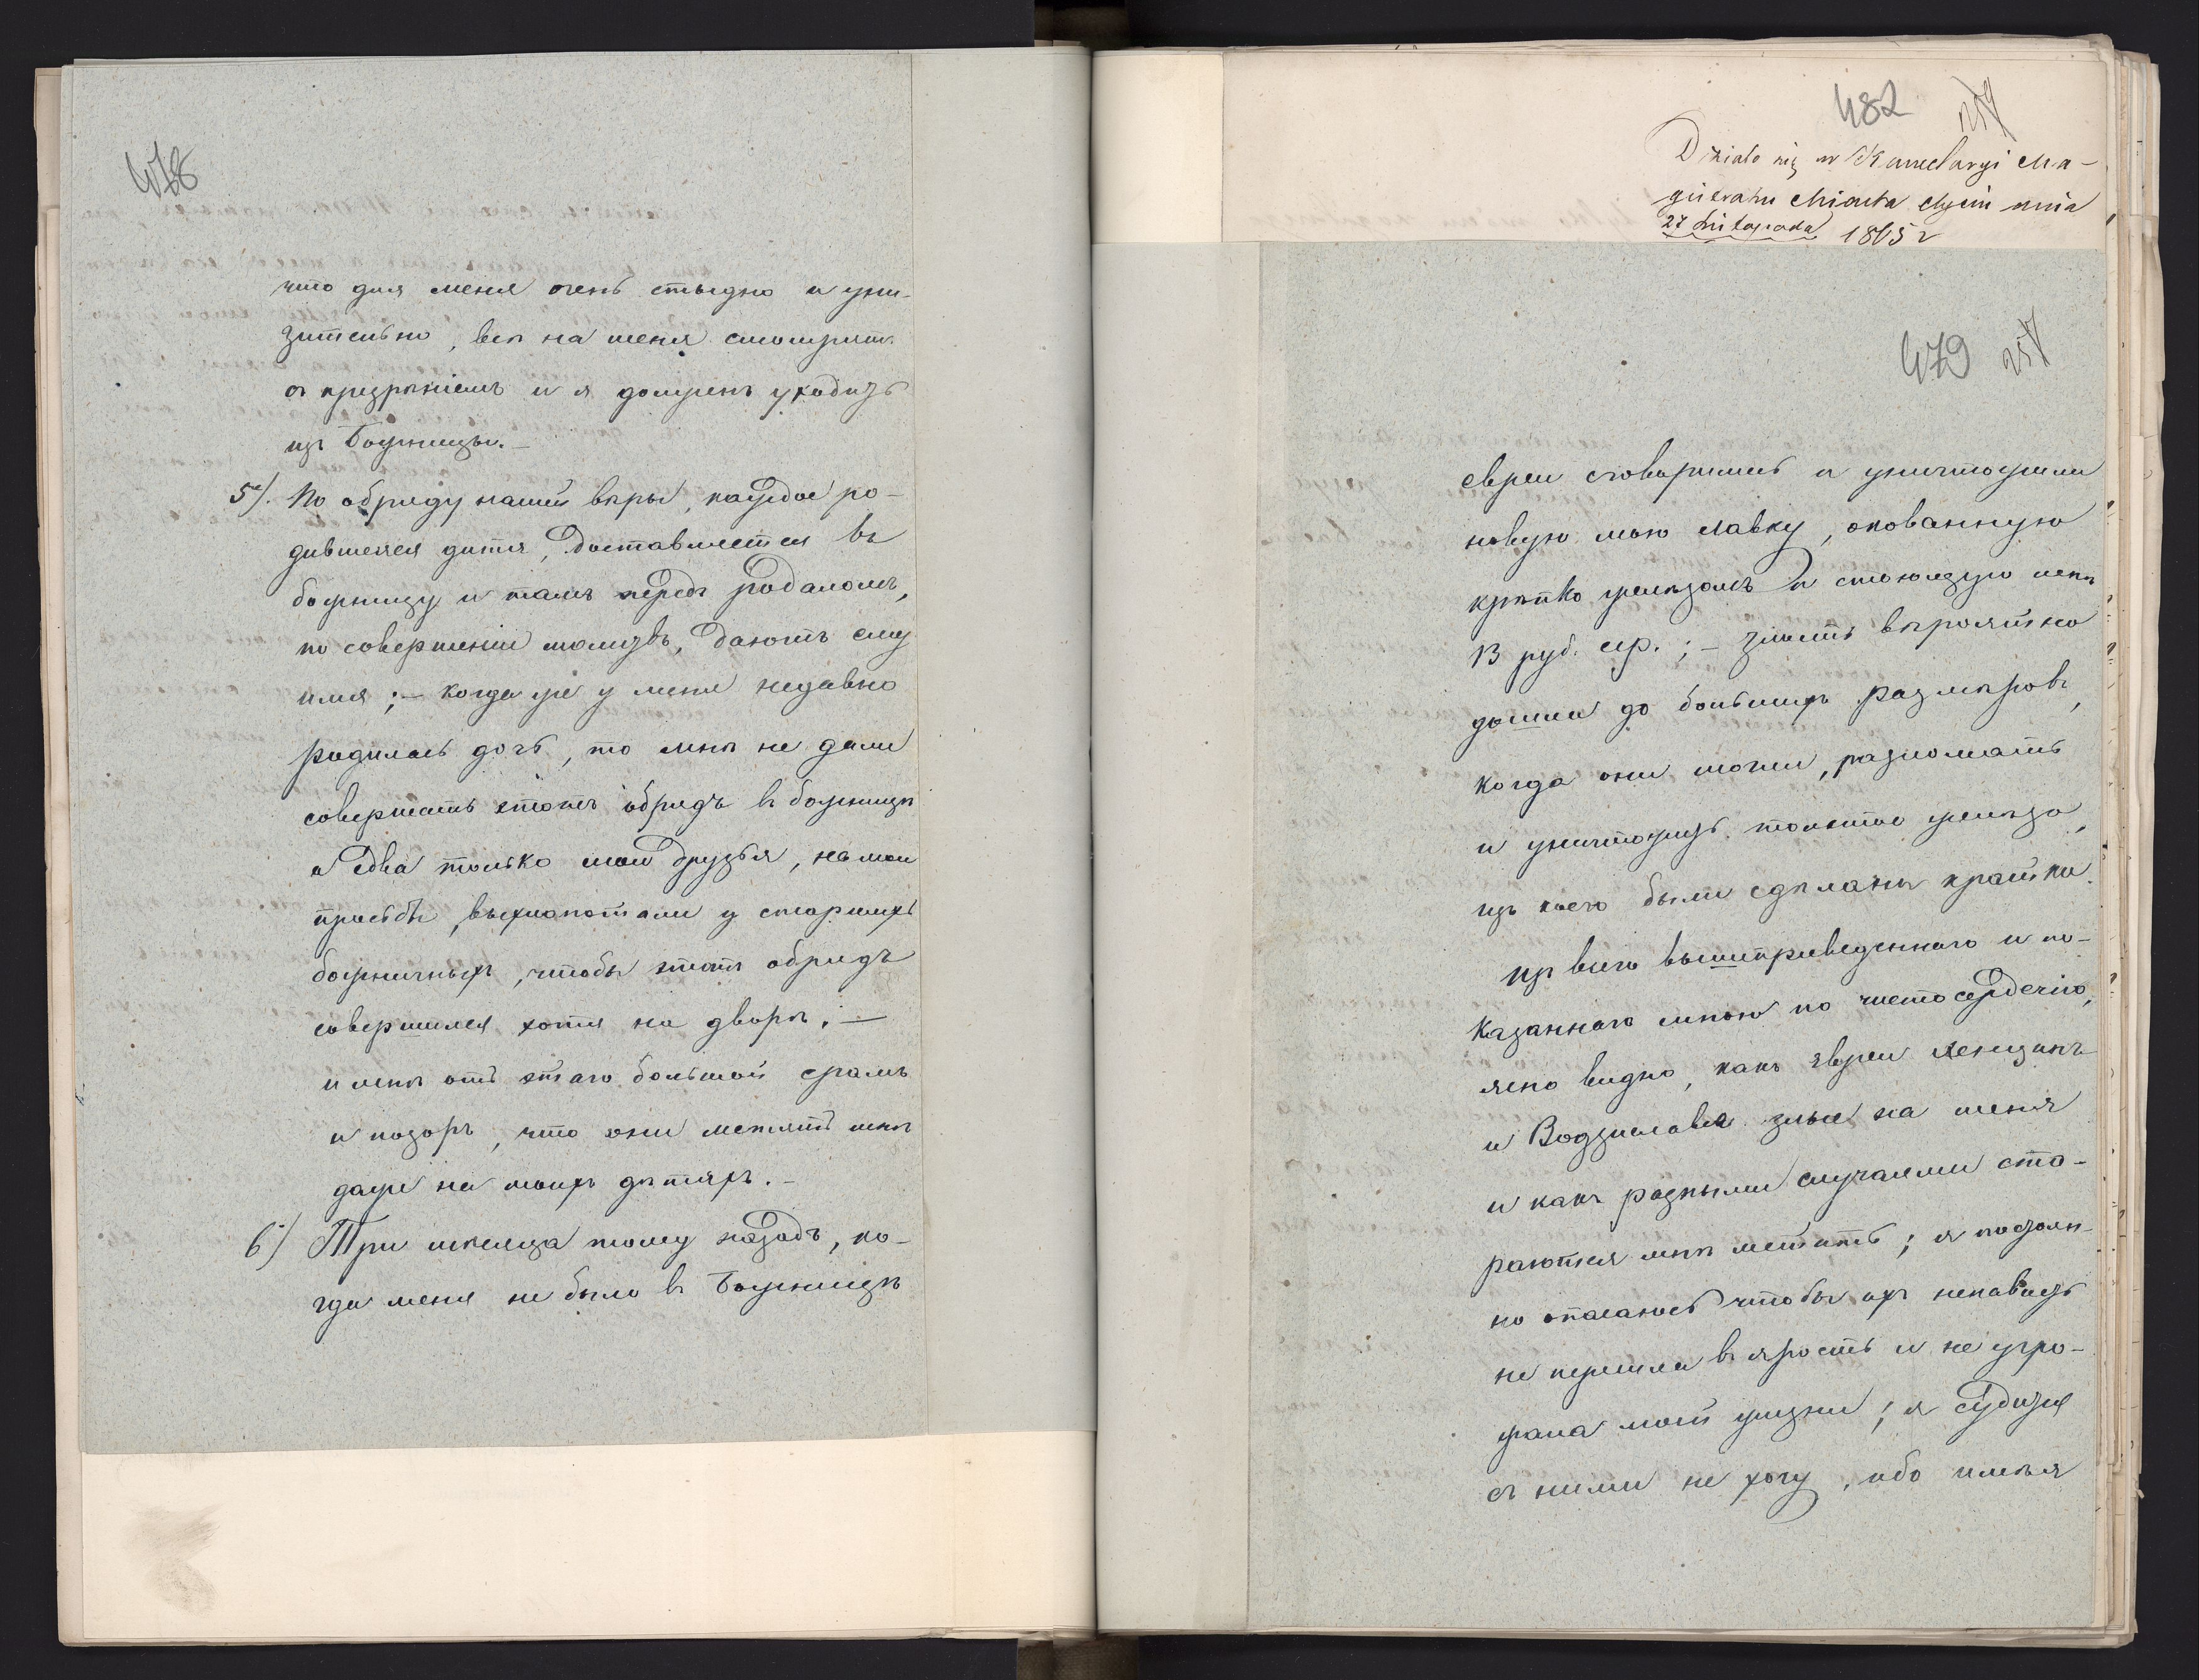 478
что для меня очень стыдно и уни-
зительно, всѣ на меня смотрят
съ презрѣніемъ и я долженъ уходить
изъ Божницы.—
5/. По обряду нашей вѣры, каждое ро-
дившееся дитя, доставляется въ
божницу и тамъ передъ родаломъ,
по совершеніи молитвъ, даютъ ему
имя;— когда же у меня недавно
родилась дочь, то мнѣ не дали
совершать этотъ обрядъ въ божницѣ
и едва только мои друзья, на мои
просьбы, выхлопотали у старшихъ
божничныхъ, чтобы этотъ обрядъ
совершился хотя на дворѣ;—
и мнѣ отъ этаго большой срамъ
и позоръ, что они мстятъ мнѣ
даже на моихъ дѣтяхъ.-
6/ Три мѣсяца тому назадъ, ко-
гда меня не было въ Божницѣ
482
Działo się w Kancelaryi Ma-
gistratu Miasta dnia
27 Listopada 1865 r
479 257
евреи сговорились и уничтожили
новую мою лавку, окованную
крѣпко желѣзомъ и стоющую мнѣ
13 руб. сер.;— злость вѣроятно
дошла до большихъ размѣровъ,
когда они могли, разломать
и уничтожить толстое желѣзо,
изъ коего были сдѣланы крайки.
Изъ всего вышеприведеннаго и по-
казаннаго мною по чистосердечію,
ясно видно, какъ евреи
и Водзислава злые на меня
и какъ разными случаями ста-
раются мнѣ мстить; я
но опасаюсь чтобы ихъ ненависть
не перешла въ ярость и не угро-
жала моей жизни; я судиться
съ ними не хочу, ибо имѣя